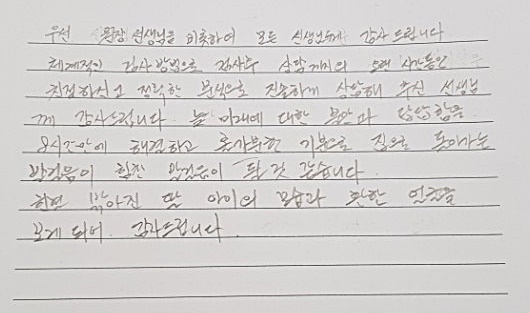 우선 원장 선생님을 비롯하여 모든 선생님들께 감사 드립니다
체계적인 검사 방법으로 검사후 상담까지의 오랜 시간동안
친절하시고 정확한 분석으로 진솔하게 상담해 주신 선생님
께 감사드립니다. 늘 미래에 대한 불안과 답답함을
8시간만에 해결하고 홀가분한 기분으로 집으로 돌아가는
발걸음이 힘찬 발걸음이 될 것 같습니다
한편 밝아진 딸 아이의 모습과 환한 얼굴을
보게 되어 감사드립니다.